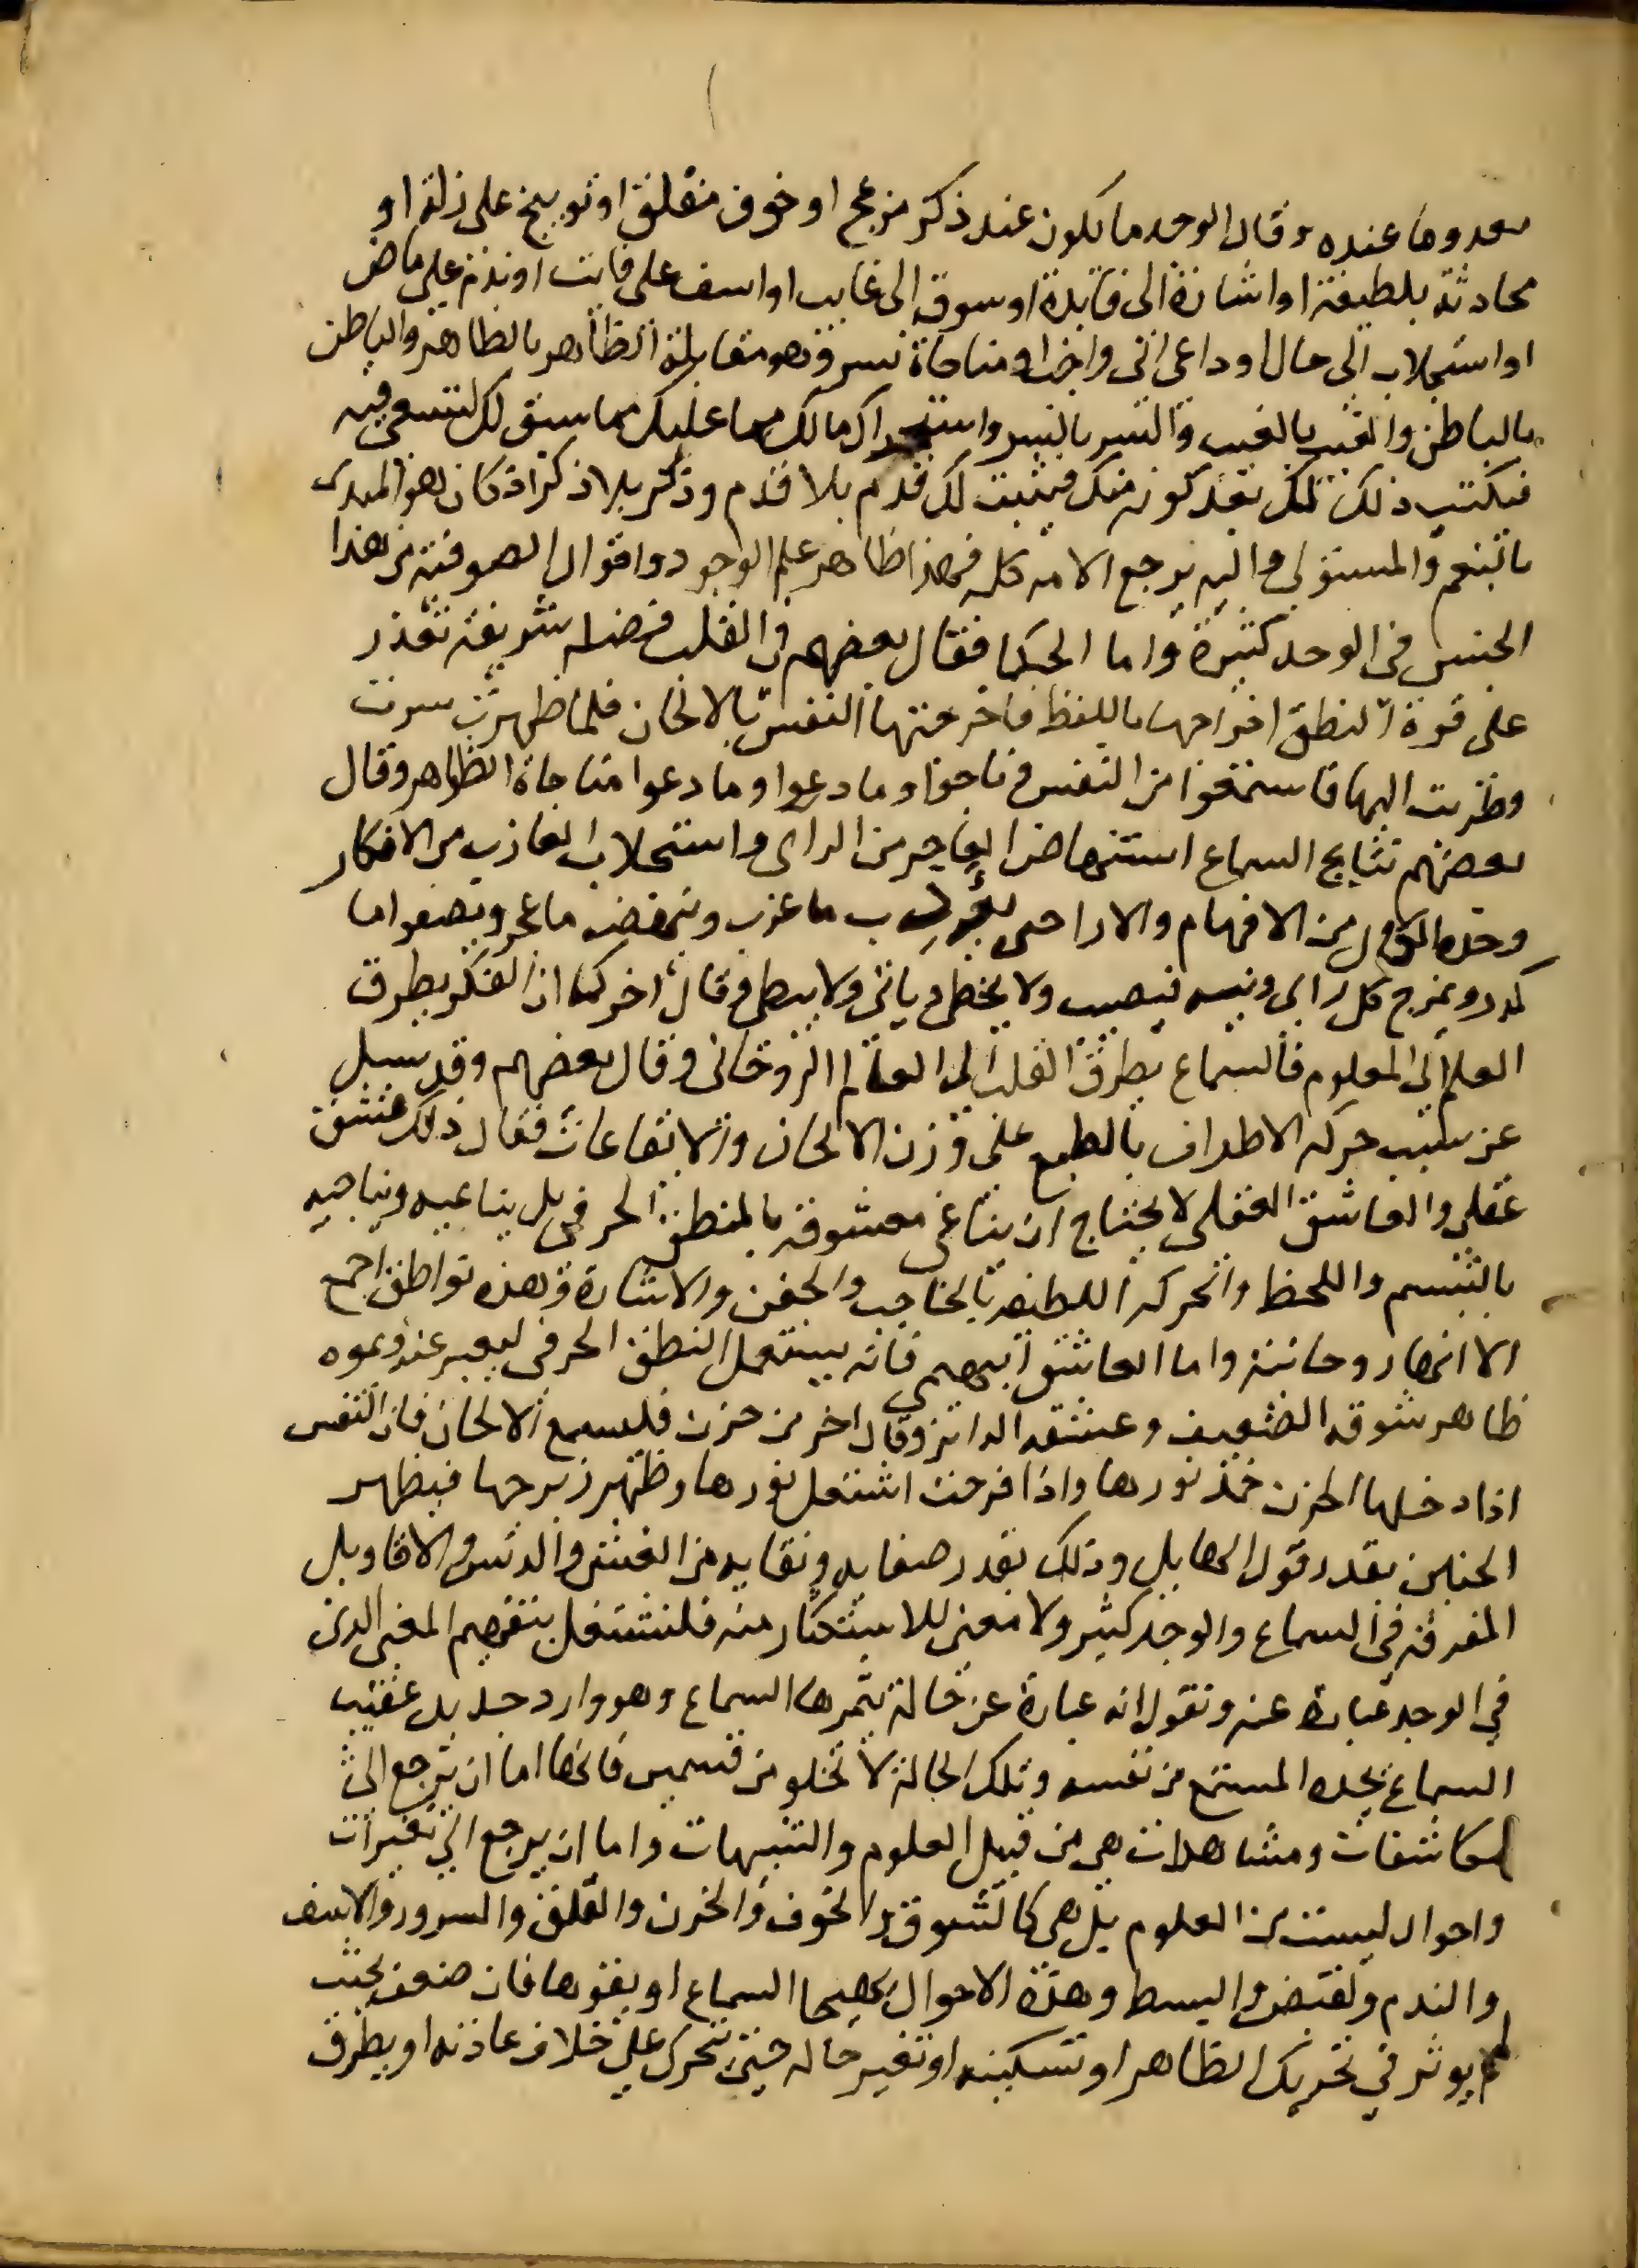 بعدوها عنده وقال الوجد ما يكون عند ذكر مزعج او خوف مقلق او توبيخ على زلة او
محادثة بلطيفة او اشارة الى فايدة او سوق الى غايب او اسف على فايت او ندم على ماض
او استجلاب الى حال او داعى الى واجب او مناجاة بسر وهو مقابلة الظاهر بالظاهر والباطن
بالباطن والغيب بالغيب والسر بالسر واستخراك مالك مما عليك مما سبق لك لتسعى فيه
فيكتب ذلك لك بعد كونه منك فيثبت لك قدم بلا قدم وذكر بلا ذكر اذ كان هو المبدى
بالنعم والمستولى واليه يرجع الامر كله فهذا ظاهر علم الوجود واقوال الصوفية من هذا
الجنس فى الوجد كثيرة واما الحكما فقال بعضهم فى القلب فضيلة شريفة تعذر
على قوة النطق اخراجها باللفظ فاخرجتها النفس بالالحان فلما ظهرت سرت
وطربت اليها فاستمعوا من النفس وناجوا وما دعوا وما دعوا مناجاة الظواهر وقال
بعضهم نتايج السماع استنهاض العاجز من الراى واستجلاب العازب من الافكار
وحدة الكال من الافهام والارا حتى يثوب ما عزب وينهض ما عجز ويصفوا ما
كدر ويمرح كل راى ونيه فيصيب ولا يخطى وياتى ولا يبطى وقال اخر كما ان الفكر يطرق
العلم الى المعلوم فالسماع يطرق القلب الى العالم الروحانى وقال بعضهم وقد سيل
عن سبب حركة الاطراف بالطبع على وزن الالحان والايقاعات فقال ذلك عشق
عقلى والعاشق العقلى لا يحتاج ان يناغى معشوقه بالمنطق الحرفى بل يناغيه ويناجيه
بالتبسم واللحظ والحركة اللطيفة بالحاجب والجفن والاشارة وهذه نواطق اجمع
الا انها روحانية واما العاشق البهيمى فانه يستعمل النطق الحرفى ليعبر عنه ويموه
ظاهر شوقه الضعيف وعشقه الزايف وقال اخر من حزن فليسمع الالحان فان النفس
اذا دخلها الحزن خمد نورها واذا فرحت اشتعل نورها وظهر زبرجها فيظهر
الحنين بقدر قول القابل وذلك بقدر صفايه ونقايه من الغش والدنس والاقاويل
المفرقة فى السماع والوجد كثير ولا معنى للاستكثار منه فلنشتغل بتفهيم المعنى الذى
في الوجد عبارة عنه ونقول انه عبارة عن حالة يثمرها السماع وهو وارد جديد عقيب
السماع يجده المستمع من نفسه وتلك الحالة لا تخلو من قسمين فانها اما ان ترجع الى
مكاشفات ومشاهدات هى من قبيل العلوم والتنبيهات واما ان يرجع الى تغيرات
واحوال ليست من العلوم بل هى كالشوق والخوف والحزن والقلق والسرور والاسف
والندم والقبض والبسط وهذه الاحوال يهيجها السماع او يقويها فان ضعف بحيث
لم يوثر في تحريك الظاهر او تسكينه او تغير حاله حتى تحرك على خلاف عادته او يطرق